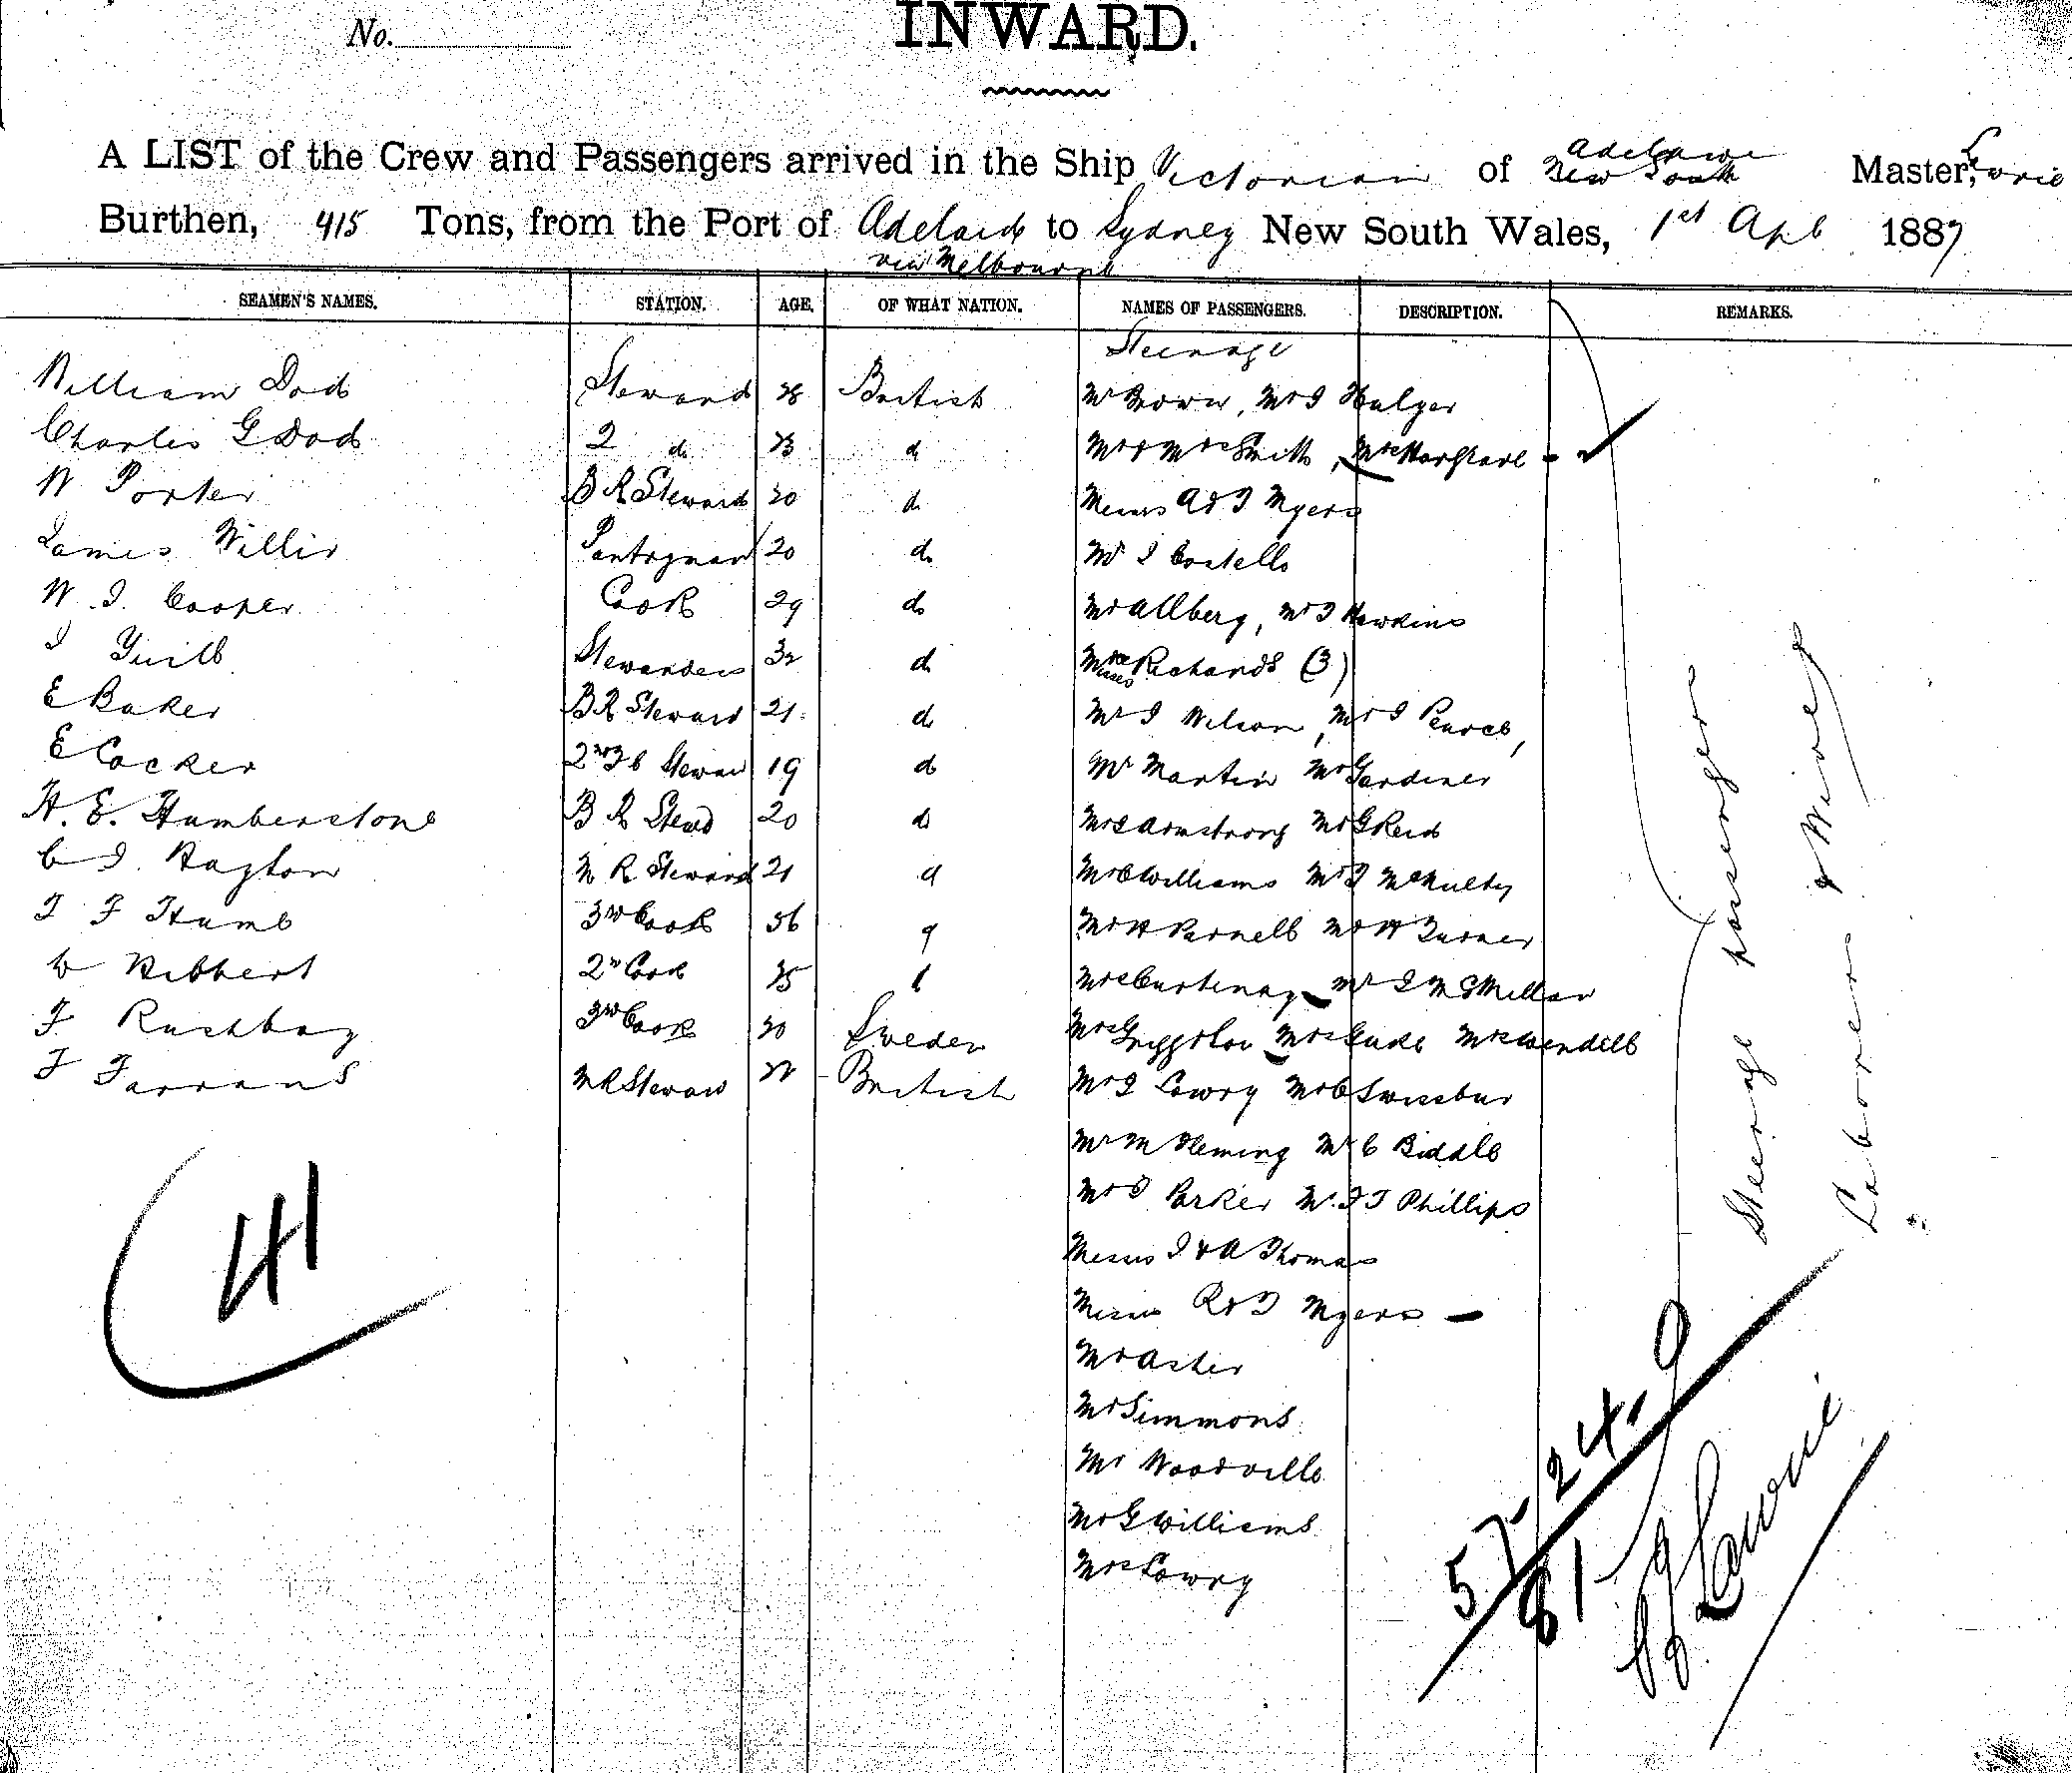 No.
INWARD.
A LIST of the Crew and Passengers arrived in the Ship Victorian of Adelaide New South Master, Lorie
Burthen, 415 Tons, from the Port of Adelaide to Sydney New South Wales, 1st Apl 1887
via Melbourne
SEAMEN'S NAMES. STATION. AGE. OF WHAT NATION. NAMES OF PASSENGERS. DESCRIPTION. REMARKS.
Steerage
William Dod Steward 28 British Mr Brown, Mr J Halger
Charles G Dod 2 do 23 do Mr & Mrs Smith, Mrs Hargrave
W Porter B R Steward 20 do Messrs A & J Myers
James Willis Pantryman 20 do Mr J Costello
W. J. Cooper Cook 29 do Mr Allberg, Mr J Hawkins
J Yuill Stewardess 32 do Misses Richards (3)
E Baker B R Steward 21 do Mr J Wilson, Mr J Pearce,
E Cocker 2nd Steward 19 do Mr Martin Mr Gardiner
H. E. Humberstone B R Steward 20 do Mrs Armstrong Mr G Reid
C J. Hayton M R Steward 21 d Mr C Williams Mr J McNulty
T F Humb 3rd Cook 36 Mr H Parnell Mr H Turner
W Hibbert 2nd Cook 25 Mrs Curtenay Mr J McMillan
F Rushbay 3rd Cook 30 Sweden Mrs Mrs Luke Mrs Wendell
F Farrans M R Steward 22 British Mr J Lowry Mr C
Mr M Fleming Mr C Biddle
Mr J Parker Mr. J J Phillips
Messrs J & A Thomas
Messrs R & J Myers
Mr Asher
Mr Simmons
Mr Woodville
Mr G Williams
Mrs Lowry
41
Steerage passengers
Laborers & Wives
57 24. 0
81
J Lowrie